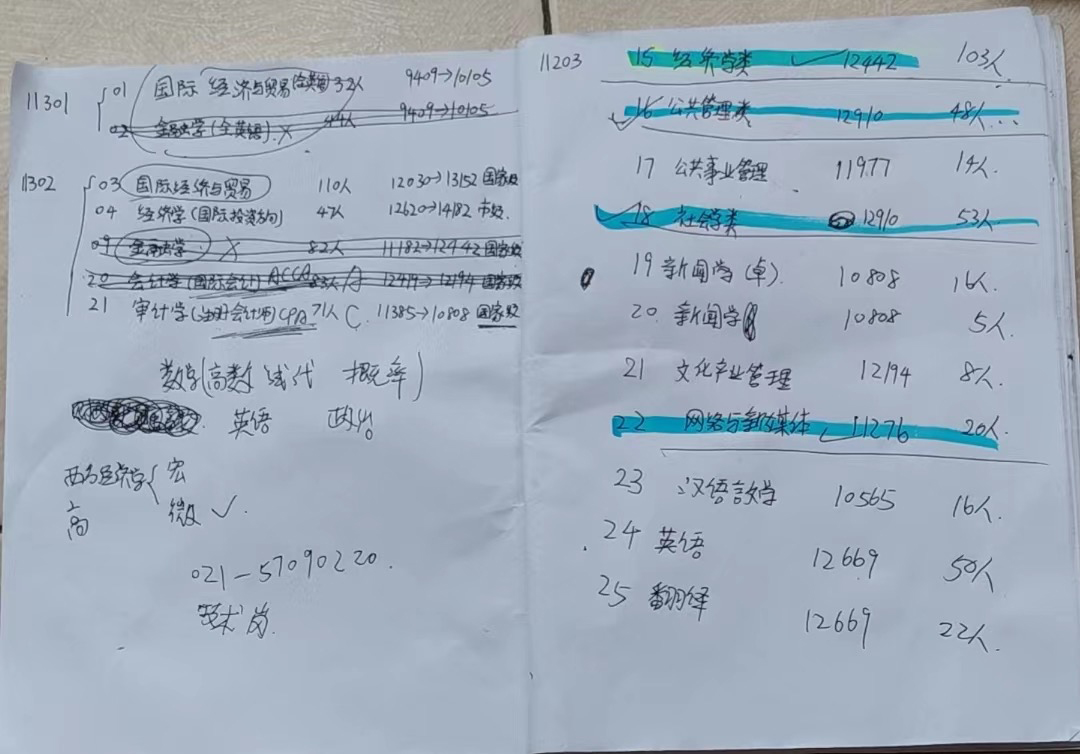 11301
01 国际经济与贸易(全英语) 32人 9409→10105
02 金融学(全英语) X 44人 9409→10105
11302
03 国际经济与贸易 110人 12030→13152 国家级
04 经济学(国际投资方向) 47人 12620→14182 市级
09 金融学 X 82人 11182→12442 国家级
20 会计学(国际会计) ACCA 83人 A 12419→12194 国家级
21 审计学(注册会计师) CPA 71人 C 11385→10808 国家级
数学(高数 线代 概率)
英语 政治
西方经济学 宏
高 微 ✓
021-57090220.
技术岗.
11203
15 经济学类 ✓ 12442 103人
✓ 16 公共管理类 12910 48人...
17 公共事业管理 11977 14人.
✓ 18 社会学类 12910 53人
19 新闻学(卓) 10808 16人.
20. 新闻学 10808 5人.
21 文化产业管理 12194 8人.
22 网络与新媒体 ✓ 11276 20人.
23 汉语言文学 10565 16人.
24 英语 12669 50人
25 翻译 12669 22人.